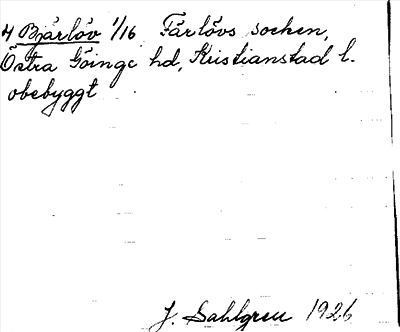 4 Bjärlöv 1/16 Färlövs socken,
Östra Göinge hd, Kristianstad l.
obebyggt
J. Sahlgren 1926